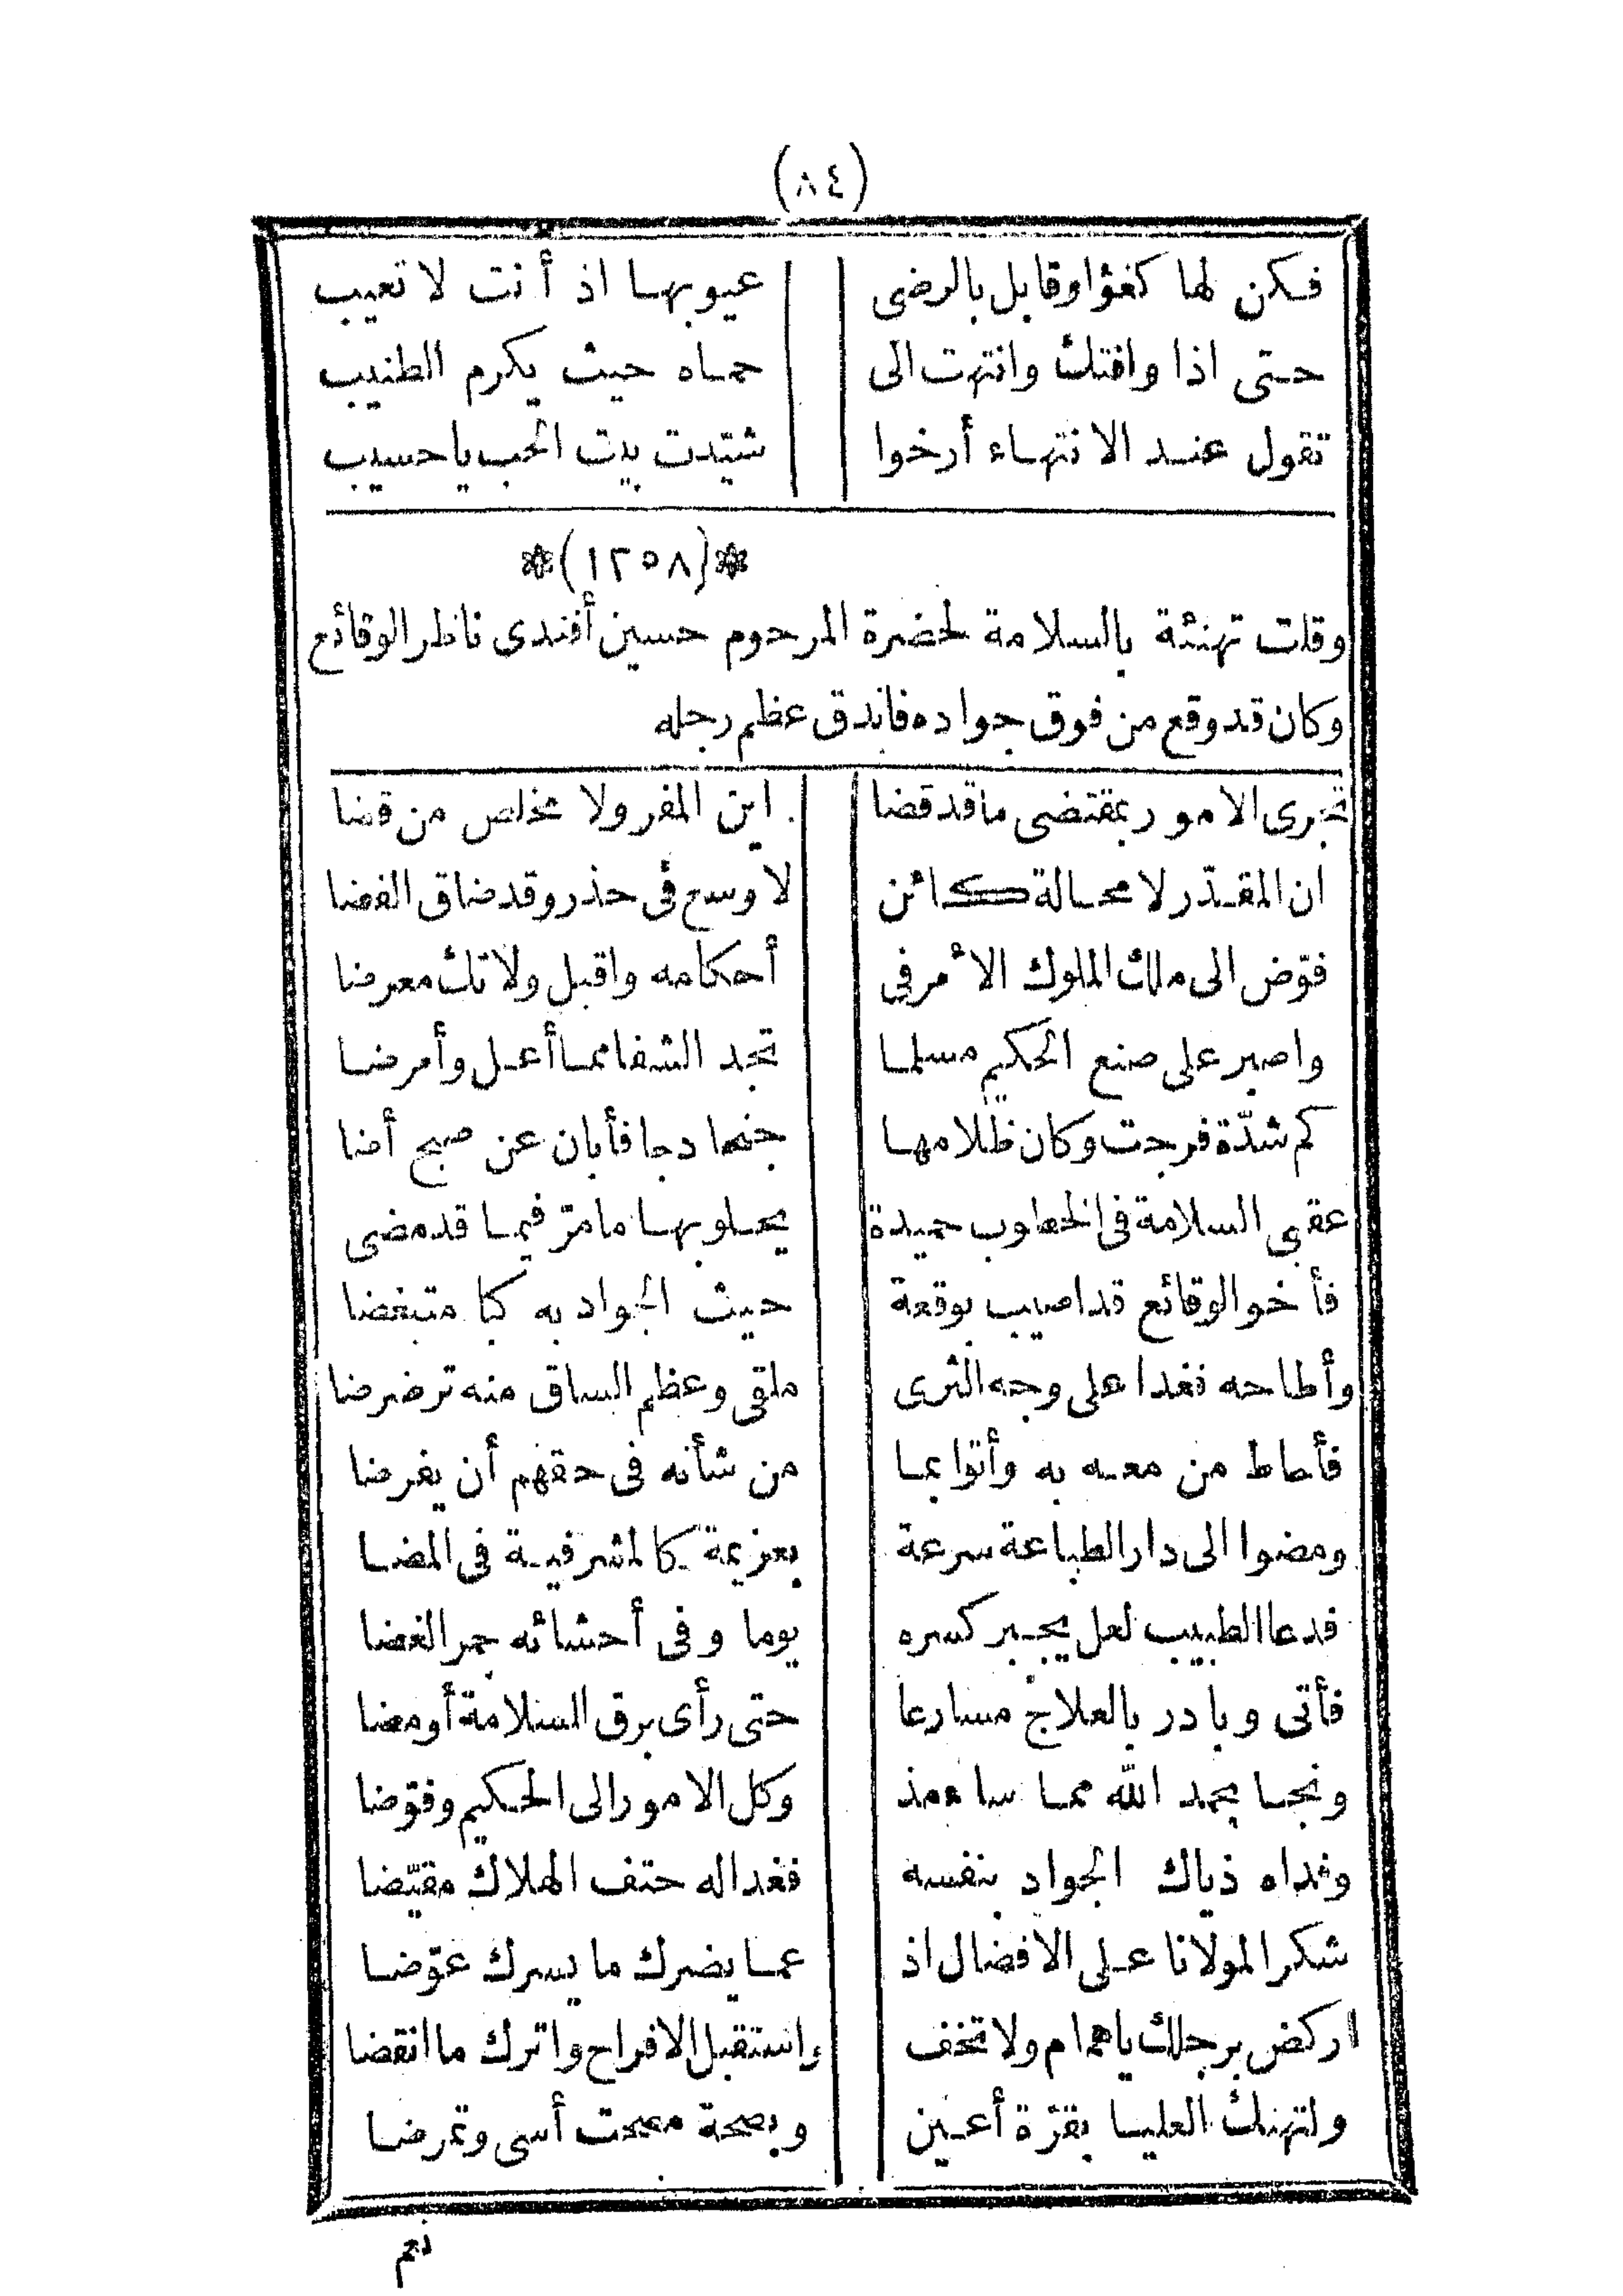 (٨٤)
فكن لها كفؤا وقابل بالرضى عيوبها اذ أنت لا تعيب
حتى اذا وافتك وانتهت الى حماه حيث يكرم الطنيب
تقول عند الانتهاء أرخوا شيّدت بيت الحب يا حسيب
*(١٢٥٨)*
وقلت تهنئة بالسلامة لحضرة المرحوم حسين أفندى ناظر الوقائع
وكان قد وقع من فوق جواده فاندق عظم رجله
تجرى الامور بمقتضى ما قد قضا اين المفر ولا مخلص من قضا
ان المقدّر لا محالة كائن لا وسع فى حذر وقد ضاق الفضا
فوّض الى ملك الملوك الأمر فى أحكامه واقبل ولا تك معرضا
واصبر على صنع الحكيم مسلما تجد الشفا مما أعل وأمرضا
كم شدّة فرجت وكان ظلامها جنحا دجا فأبان عن صبح أضا
عقبى السلامة فى الخطوب حميدة يحلو بها ما مرّ فيما قد مضى
فأخو الوقائع قد اصيب بوقعة حيث الجواد به كبا متبغضا
وأطاحه فغدا على وجه الثرى ملقى وعظم الساق منه ترضرضا
فأحاط من معه به وأتوا بما من شأنه فى حقهم أن يفرضا
ومضوا الى دار الطباعة سرعة بعزيمة كالمشرفية فى المضا
فدعا الطبيب لعل يجبر كسره يوما وفى أحشائه جمر الغضا
فأتى وبادر بالعلاج مسارعا حتى رأى برق السلامة أومضا
ونجا بحمد الله مما ساءه مذ وكل الامور الى الحكيم وفوّضا
وفداه ذياك الجواد بنفسه فغدا له حتف الهلاك مقيّضا
شكرا لمولانا على الافضال اذ عما يضرك ما يسرك عوّضا
اركض برجلك يا همام ولا تخف واستقبل الافراح واترك ما انقضا
ولتهنك العليا بقرّة أعين وبصحة محت أسى وتمرضا
نعم